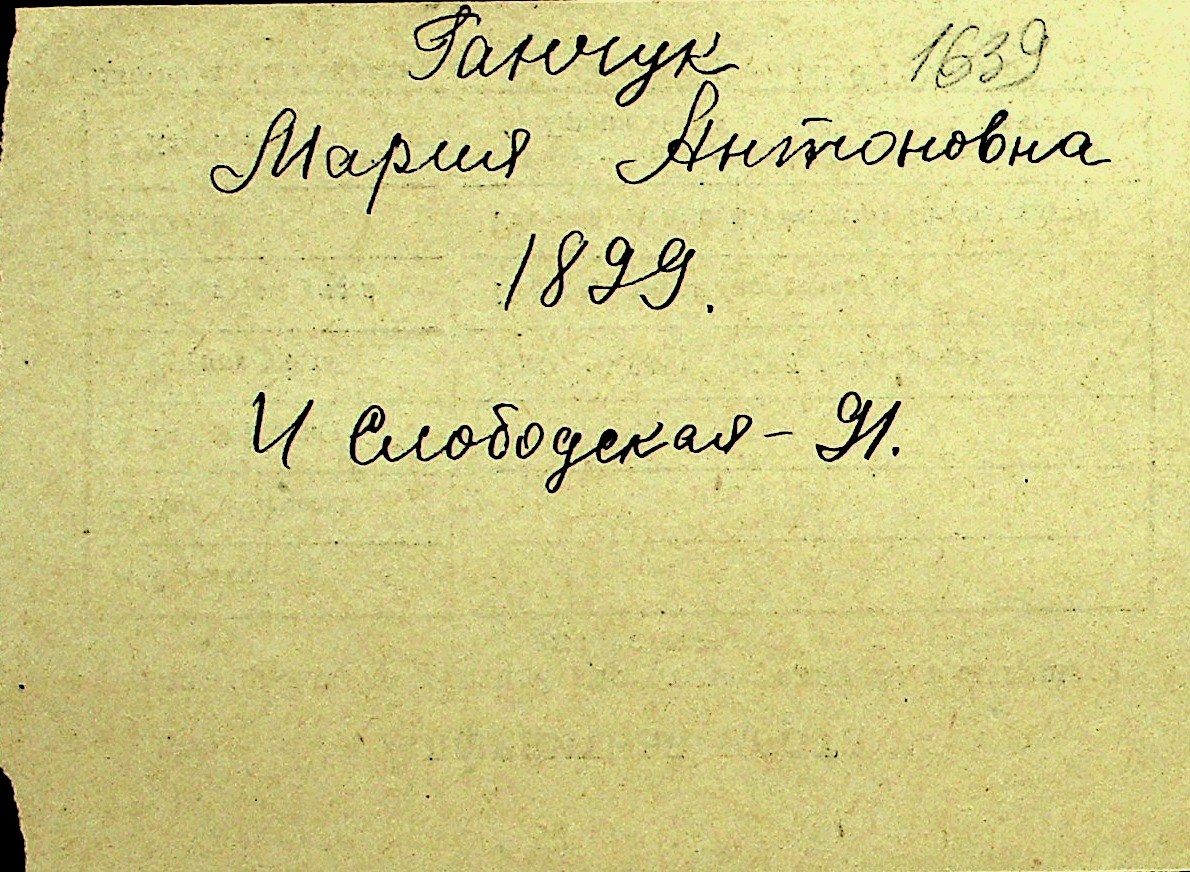 Ганчук 1639
Мария Антоновна
1899.
И Слободская - 91.